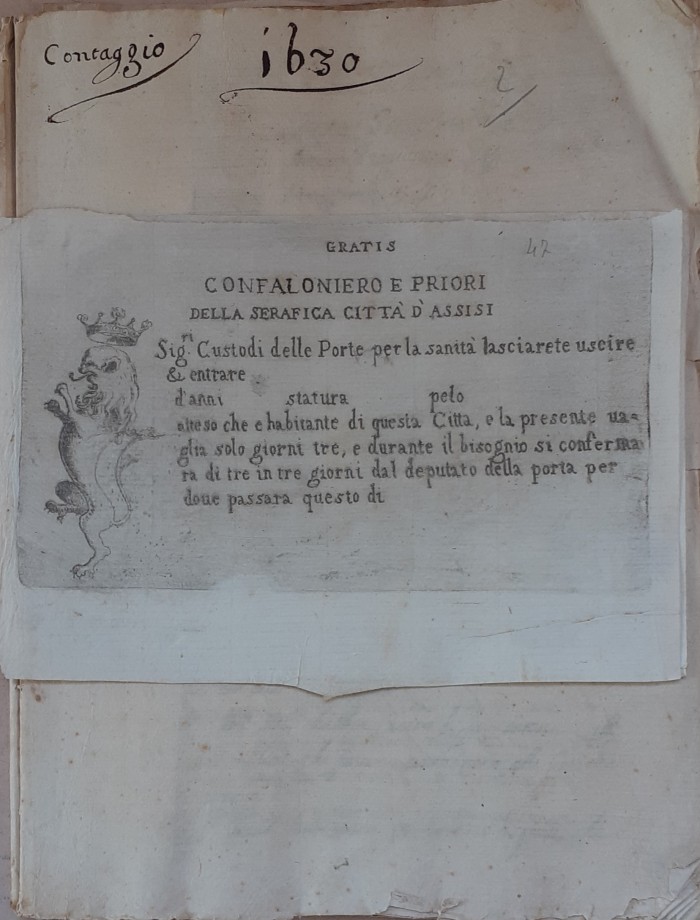 Contaggio 1630
2
GRATIS
47
CONFALONIERO E PRIORI
DELLA SERAFICA CITTÀ D'ASSISI
Sig.ri Custodi delle Porte per la sanità lasciarete uscire
& entrare
d'anni statura pelo
atteso che e habitante di questa Citta, e la presente ua=
glia solo giorni tre, e durante il bisognio si conferma
ra di tre in tre giorni dal deputato della porta per
doue passara questo di